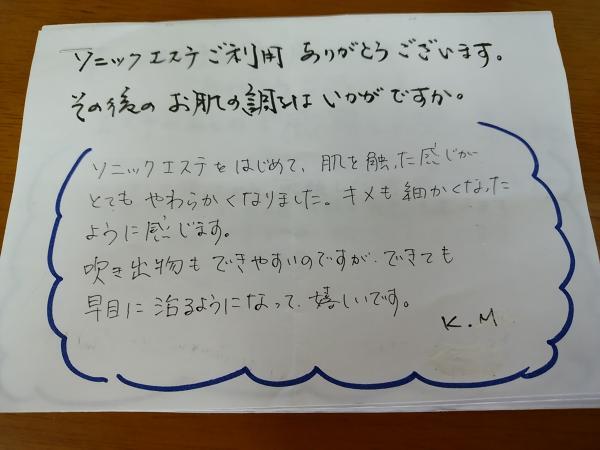 ソニックエステご利用 ありがとうございます。
その後の お肌の調子は いかがですか。
ソニックエステをはじめて、肌を触った感じが
とても やわらかくなりました。キメも 細かくなった
ように感じます。
吹き出物も できやすいのですが、できても
早目に 治るようになって、嬉しいです。
K.M